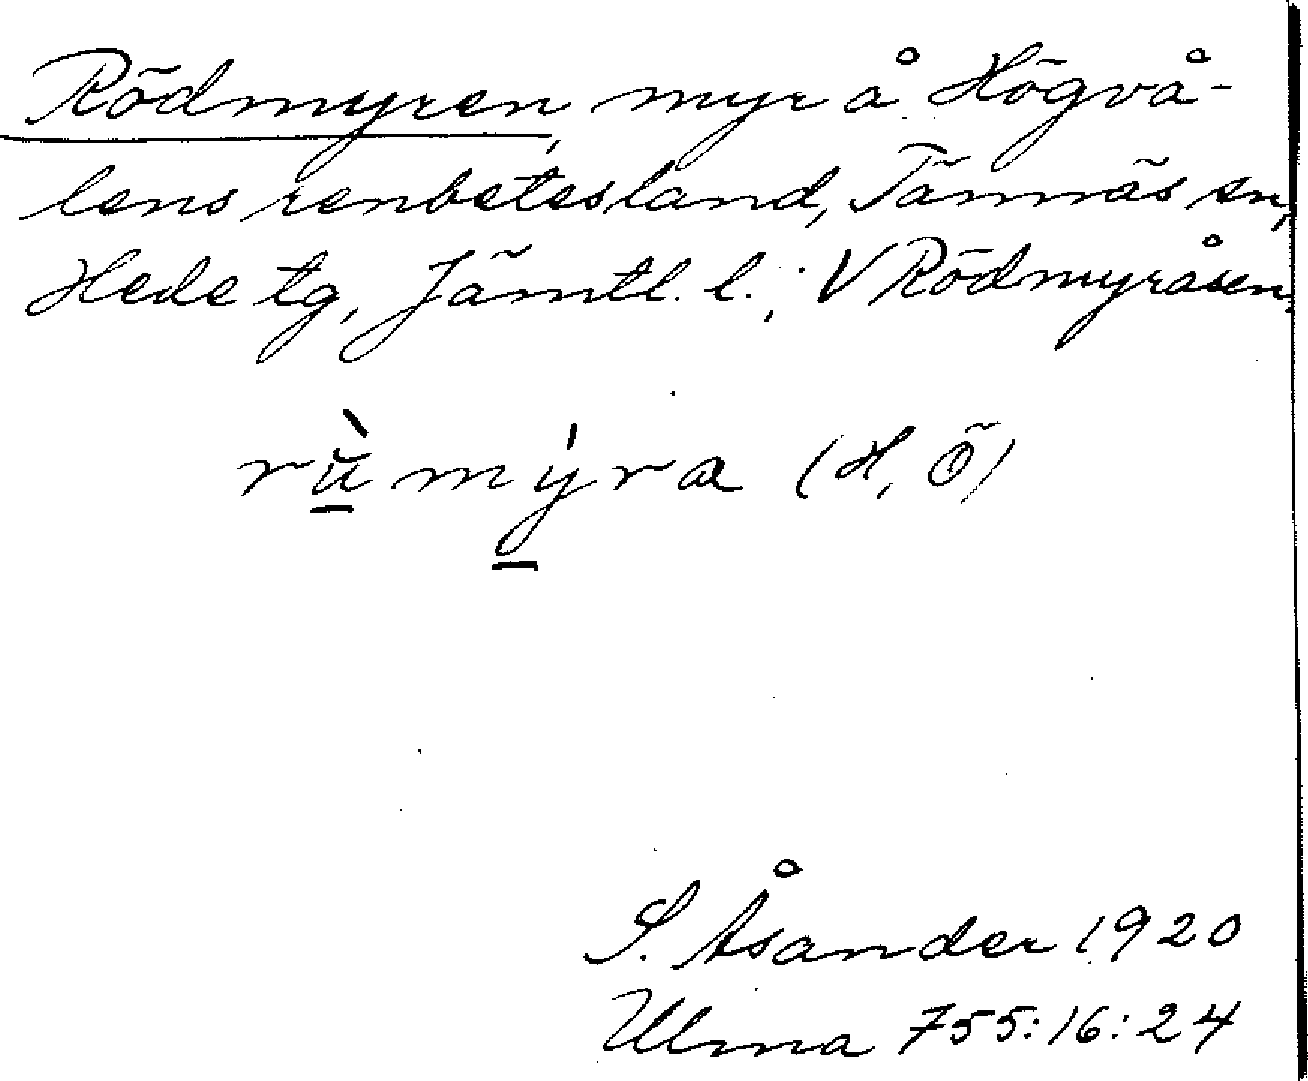 Rödmyren, myr å Högvå-
lens renbetesland, Tännäs sn,
Hede tg, Jämtl. l.; V Rödmyråsen.
rùmýra (H, Ö)
S. Åsander 1920
Ulma 755:16:24